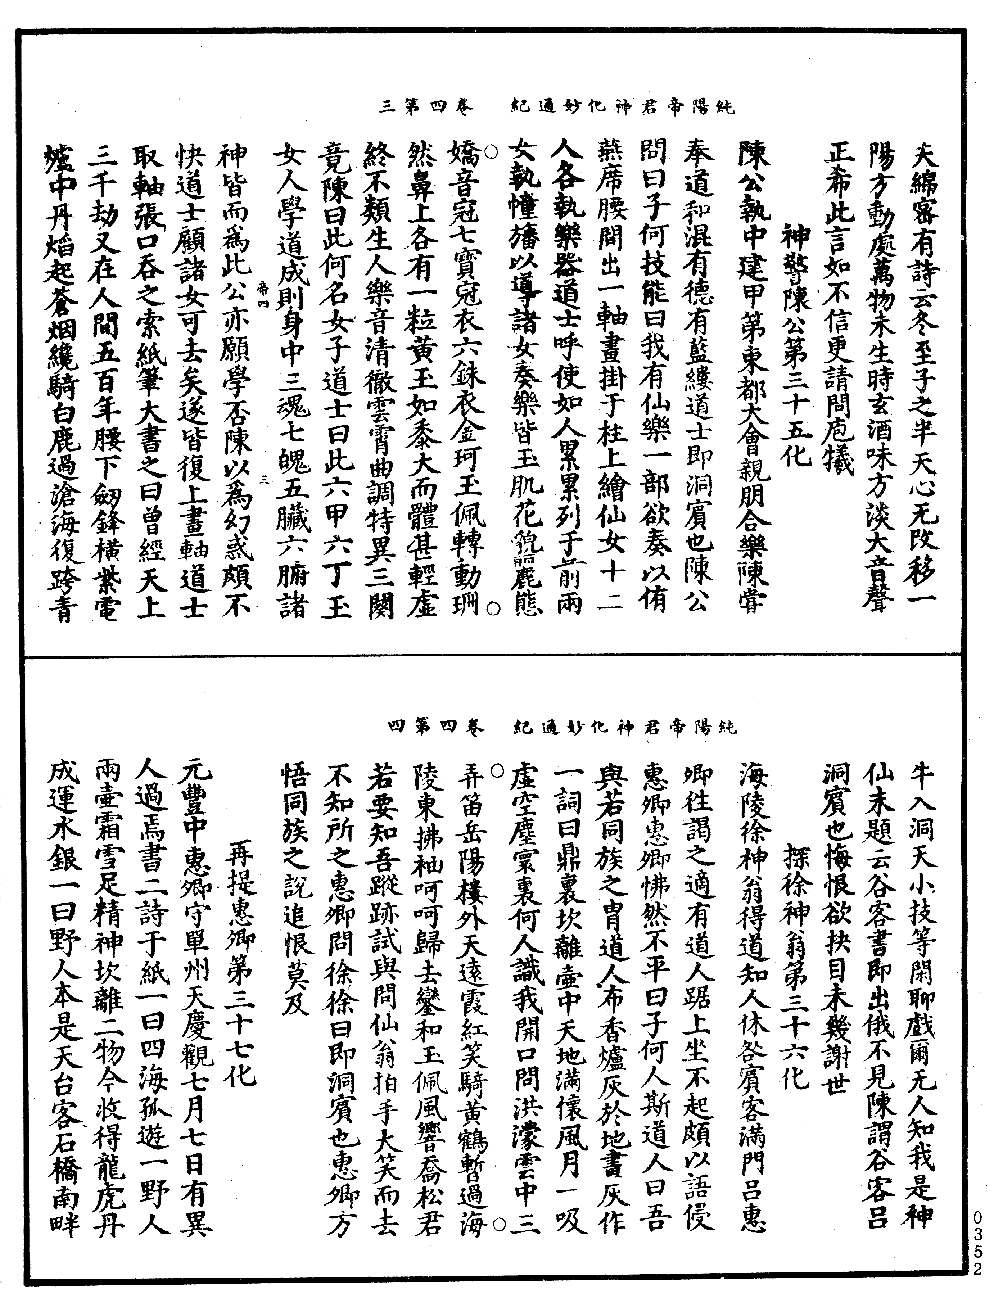 純陽帝君神化妙通紀　卷四第三
夫綿密有詩云冬至子之半天心无改移一
陽方動處萬物未生時玄酒味方淡大音聲
正希此言如不信更請問庖犧
神警陳公第三十五化
陳公執中建甲第東都大會親朋合樂陳嘗
奉道和混有德有藍縷道士即洞賓也陳公
問曰子何技能曰我有仙樂一部欲奏以侑
燕席腰間出一軸畫掛于柱上繪仙女十二
人各執樂器道士呼使如人累累列于前兩
女執幢旛以導諸女奏樂皆玉肌花貌麗態
嬌音冠七寶冠衣六銖衣金珂玉佩轉動珊
然鼻上各有一粒黃玉如黍大而體甚輕虛
終不類生人樂音清徹雲霄曲調特異三闋
竟陳曰此何名女子道士曰此六甲六丁玉
女人學道成則身中三魂七魄五臟六腑諸
帝四　三
神皆而為此公亦願學否陳以為幻惑頗不
快道士顧諸女可去矣遂皆復上畫軸道士
取軸張口吞之索紙筆大書之曰曾經天上
三千劫又在人間五百年腰下劒鋒橫紫電
爐中丹熖起蒼烟纔騎白鹿過滄海復跨青
純陽帝君神化妙通紀　卷四第四
牛入洞天小技等閑聊戲爾无人知我是神
仙末題云谷客書即出俄不見陳謂谷客吕
洞賓也悔恨欲抉目未幾謝世
探徐神翁第三十六化
海陵徐神翁得道知人休咎賓客滿門吕惠
卿往謁之適有道人踞上坐不起頗以語侵
惠卿惠卿怫然不平曰子何人斯道人曰吾
與若同族之胄道人布香爐灰於地畫灰作
一詞曰鼎裏坎離壺中天地滿懷風月一吸
虛空塵寰裏何人識我開口問洪濛雲中三
弄笛岳陽樓外天遠霞紅笑騎黃鶴暫過海
陵東拂袖呵呵歸去鑾和玉佩風響喬松君
若要知吾蹤跡試與問仙翁拍手大笑而去
不知所之惠卿問徐徐曰即洞賓也惠卿方
悟同族之說追恨莫及
再提惠卿第三十七化
元豐中惠卿守單州天慶觀七月七日有異
人過焉書二詩于紙一曰四海孤遊一野人
兩壺霜雪足精神坎離二物今收得龍虎丹
成運水銀一曰野人本是天台客石橋南畔
0352